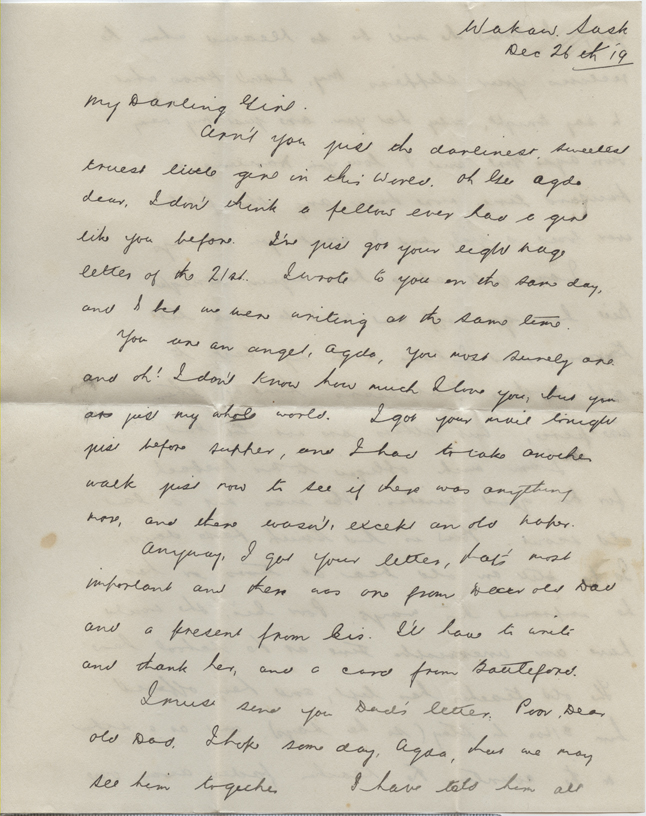 Wakaw. Sask
Dec 26th '19
My Darling Girl.
Arn't you just the darlinest, sweetest
truest little girl in this World. Oh Gee Agda
dear, I don't think a fellow ever had a girl
like you before. I've just got your eight page
letter of the 21st. I wrote to you on the same day,
and I bet we were writing at the same time.
You are an angel, Agda, you most surely are
and oh! I don't know how much I love you, but you
are just my whole world. I got your mail tonight
just before supper, and I had to take another
walk just now to see if there was anything
more, and there wasn't, except an old paper.
Anyway, I got your letter, that's most
important and there was one from Dear old Dad
and a present from Sis. I'll have to write
and thank her, and a card from Battleford.
I must send you Dad's letter. Poor, Dear
old Dad. I hope some day, Agda, that we may
see him together I have told him all